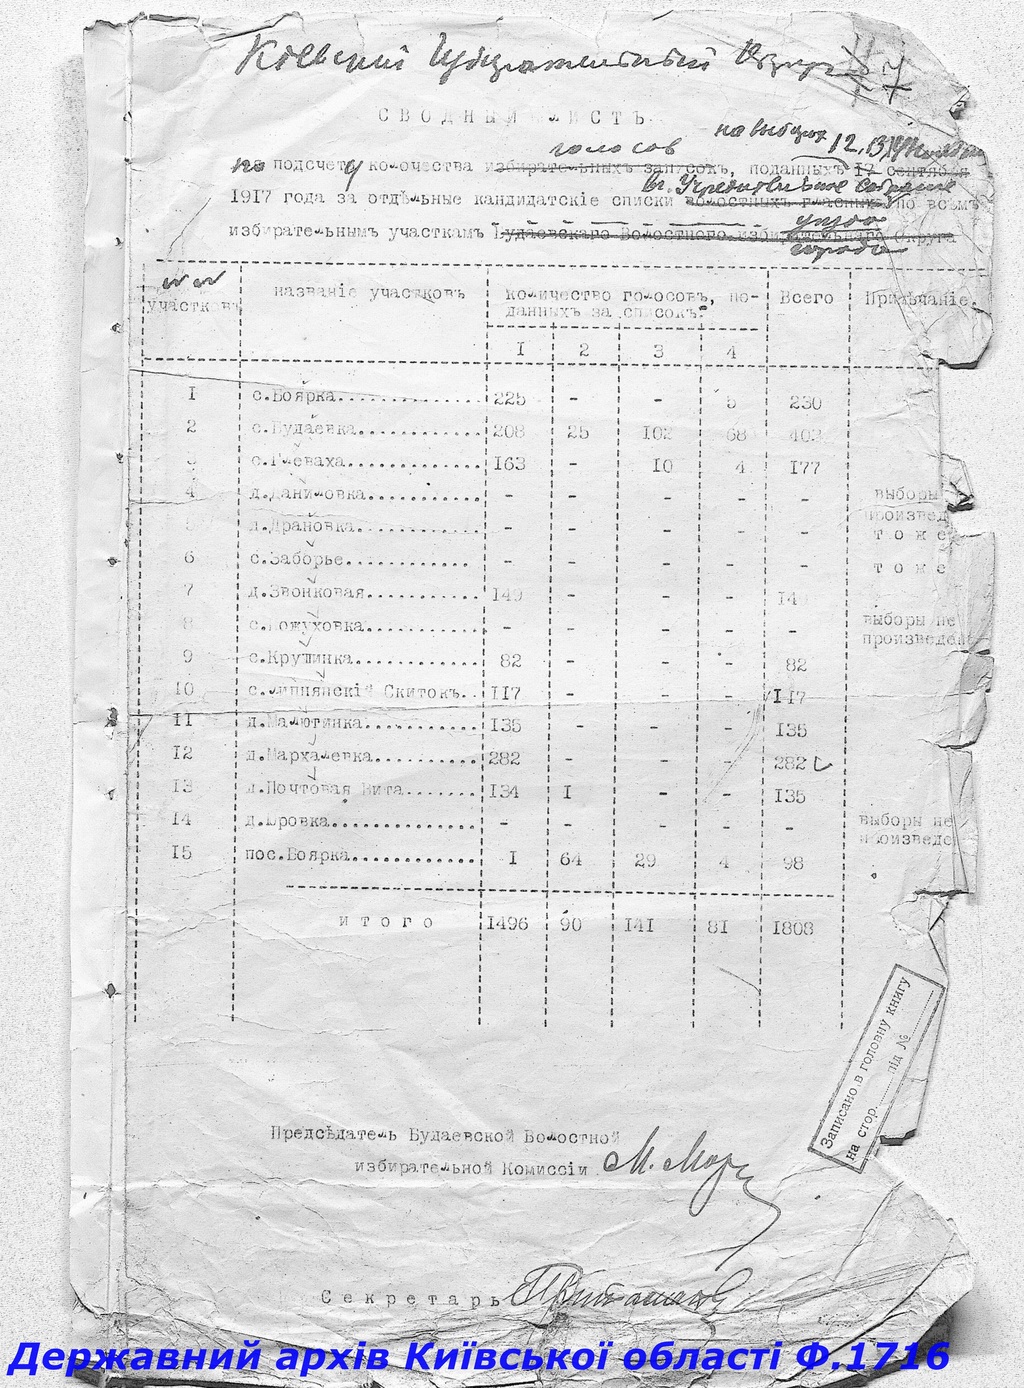 Киевский Избирательный Округ
СВОДНЫЙ ЛИСТЪ
голосов на выборах 12, 13, 14 Ноября
по подсчету количества избирательныхъ записокъ, поданныхъ 17 сентября
в. Учредительное собрание
1917 года за отдѣльные кандидатскіе списки волостныхъ гласныхъ по всѣмъ
уезда
избирательнымъ участкамъ Будаевскаго Волостного избирательнаго Округа
города
№№ участковъ названіе участковъ количество голосовъ, по- Всего Примѣчаніе.
данныхъ за списокъ:
1 2 3 4
1 с.Боярка 225 - - 5 230
2 с.Будаевка 208 25 102 68 403
3 с.Глеваха 163 - 10 4 177
4 д.Даниловка - - - - - выборы
произвед
5 д.Драновка - - - - - т о ж е
6 с.Заборье - - - - - т о ж е
7 д.Звонковая 149 - - - 14
8 с.Кожуховка - - - - - выборы не
произведе
9 с.Крушинка 82 - - - 82
10 с.Липнянскій Скитокъ 117 - - - 117
11 д.Малютянка 135 - - - 135
12 д.Мархалевка 282 - - - 282
13 д.Почтовая Вита 134 1 - - 135
14 д.Юровка - - - - - выборы не
произведе
15 пос.Боярка 1 64 29 4 98
ИТОГО 1496 90 141 81 1808
Записано в головну книгу
на стор. під №
Предсѣдатель Будаевской Волостной
избирательной Комиссіи М.
Секретарь
Державний архів Київської області Ф.1716